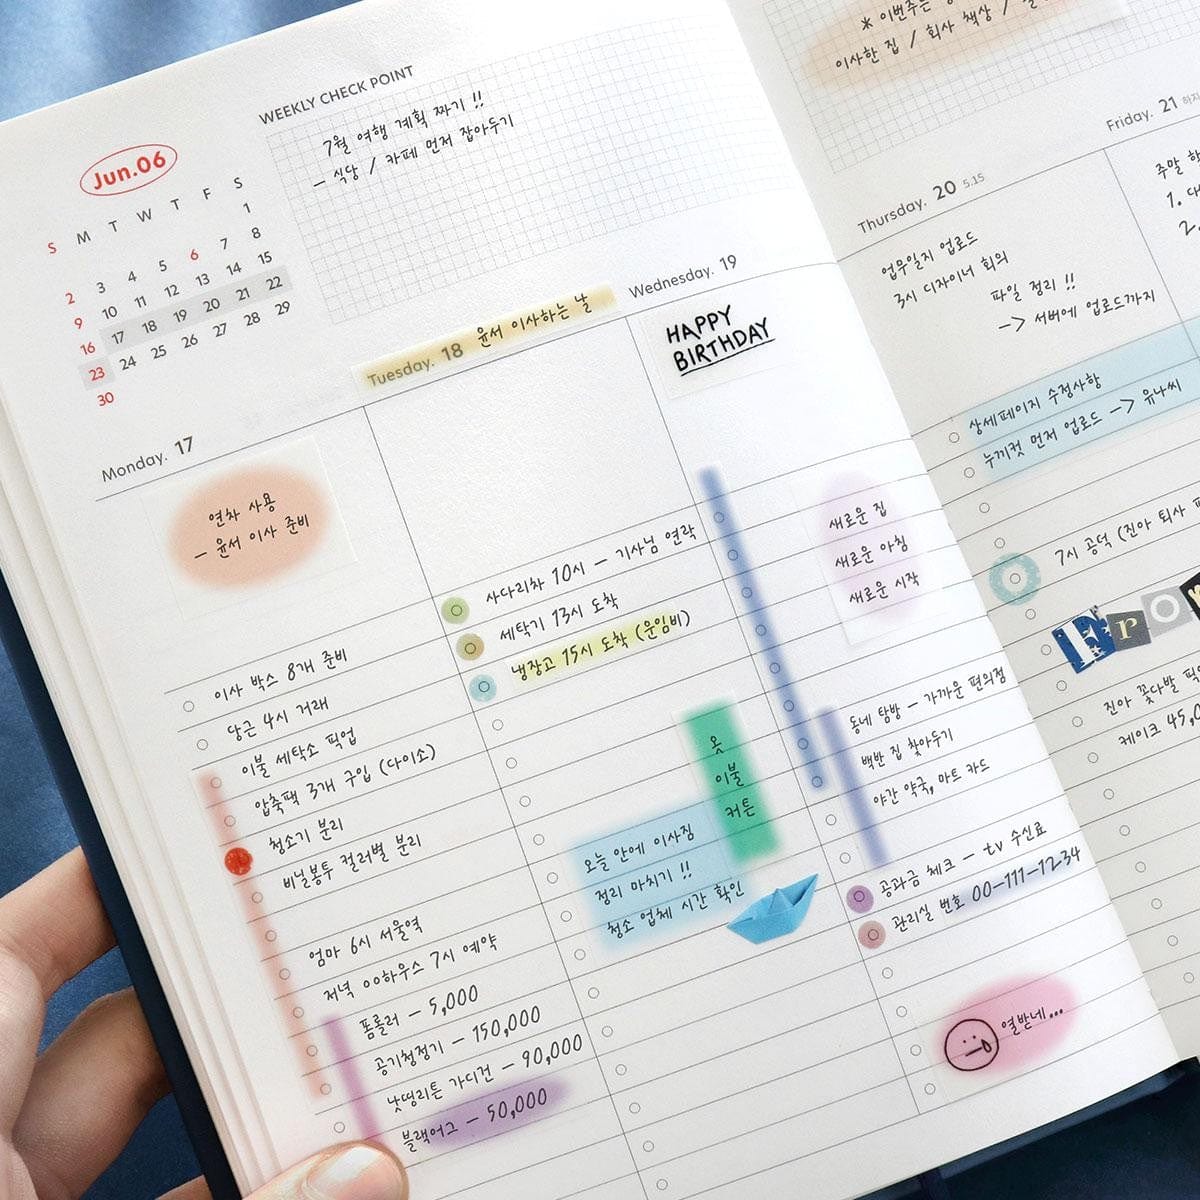 WEEKLY CHECK POINT
7월 여행 계획 짜기 !!
– 식당 / 카페 먼저 잡아두기
Jun.06
S M T W T F S
1
2 3 4 5 6 7 8
9 10 11 12 13 14 15
16 17 18 19 20 21 22
23 24 25 26 27 28 29
30
Monday. 17
연차 사용
– 윤서 이사 준비
이사 박스 8개 준비
당근 4시 거래
이불 세탁소 픽업
압축팩 3개 구입 (다이소)
청소기 분리
비닐봉투 컬러별 분리
엄마 6시 서울역
저녁 oo하우스 7시 예약
폼롤러 – 5,000
공기청정기 – 150,000
낫띵리튼 가디건 – 90,000
블랙어그 – 50,000
Tuesday. 18 윤서 이사하는 날
사다리차 10시 – 기사님 연락
세탁기 13시 도착
냉장고 15시 도착 (운임비)
옷
이불
커튼
오늘 안에 이사짐
정리 마치기 !!
청소 업체 시간 확인
Wednesday. 19
HAPPY
BIRTHDAY
새로운 집
새로운 아침
새로운 시작
동네 탐방 – 가까운 편의점
백반 집 찾아두기
야간 약국, 마트 카드
공과금 체크 – tv 수신료
관리실 번호 00-111-1234
열받네...
* 이번주는
이사한 집 / 회사 책상 /
Thursday. 20 5.15
업무일지 업로드
3시 디자이너 회의
파일 정리 !!
-> 서버에 업로드까지
상세페이지 수정사항
누끼컷 먼저 업로드 -> 유나씨
7시 공덕 (진아 퇴사
Fro
진아 꽃다발
케이크 45,0
Friday. 21 하지
주말
1.
2.